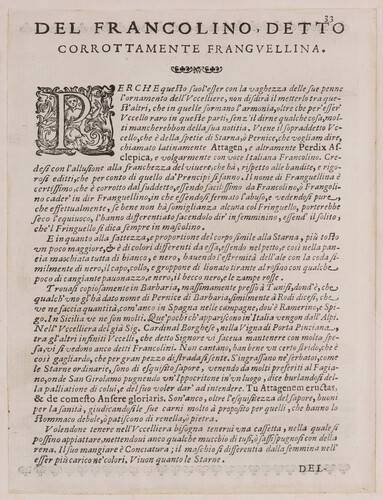 33
DEL FRANCOLINO, DETTO
CORROTTAMENTE FRANGVELLINA.
PERCHE questo suol'esser con la vaghezza delle sue penne
l'ornamento dell'Vccelliere, non disdirà il metterlo tra que
st'altri, che in quelle formano l'armonia, oltre che per'esser
Vccello raro in queste parti, senz'il dirne qualche cosa, mol
ti mancherebbon della sua notitia. Viene il sopraddetto Vc-
cello, che è della spetie di Starna, ò Pernice, che vogliam dire,
chiamato latinamente Attagen, e altramente Perdix As-
clepica, e volgarmente con voce Italiana Francolino. Cre-
desi con l'allusione alla franchezza del viuere, che hà, rispetto alle bandite, e rigo-
rosi editti, che per conto di quello da' Prencipi si fanno. Il nome di Franguellina è
certissimo, che è corrotto dal suddetto, essendo facilissimo da Francolino, ò Frangoli
no cader' in dir Franguellino, in che essendosi fermato l'abuso, e vedendosi pore
che effettualmente, se bene non hà somiglianza alcuna col Fringuello, porterebbe
seco l'equiuoco, l'hanno differentiato facendolo dir' in femminino, essend' il solito
che'l Fringuello si dica sempre in mascolino.
E in quanto alla fattezza, e proportione del corpo simile alla Starna, più tosto
vn poco maggiore, & è di colori differenti da essa, essendo nel petto, e così nella pan-
cia maschiata tutta di bianco, e nero, hauendo l'estremità dell'ale con la coda si-
milmente di nero, il capo, collo, e groppone di lionato tirante al rosino con qualche
poco di cangiante pauonazzo, e nero, il becco nero, e le zampe rosse.
Trouasi copiosamente in Barbaria, massimamente presso à Tunisi, dond'è, che
qualch'vno gl'hà dato nome di Pernice di Barbaria, similmente à Rodi dicesi, che
ve ne sia in quantità, com'anco in Spagna nelle campagne, dou'è Ramerino, e Spi-
go. In Sicilia ve ne son molti. Que' pochi ch'appariscono in Italia vengon dall'Alpi.
Nell'Vccelliera del già Sig. Cardinal Borghese, nella Vigna di Porta Pinciana,
tra gl'altri infiniti Vccelli, che detto Signore vi facua mantenere con molta spe-
sa, vi si vedono anco detti Francolini. Non cantano, han bene vn certo fischio, che è
così gagliardo, che per gran pezzo di strada si sente. S'ingrassano ne' serbatoi, come
le Starne ordinarie, sono di esquisito sapore, venendo da molti preferiti al Fagia-
no, onde San Girolamo pugnendo vn'Ippocritone in vn luogo, dice burlandosi del-
la palliatione di colui, e del suo voler dar' ad intendere. Tu Attagenem eructas,
& de comesto Ansere gloriaris. Son'anco, oltre l'esquisitezza del sapore, buoni
per la sanità, giudicandosi le sue carni molto à proposito per quelli, che hanno lo
stommaco debole, ò patiscono di renella, ò pietra.
Volendone tenere nell'Vccelliera bisogna tenerui vna cassetta, nella quale si
possino appiattare, mettendoui anco qualche mucchio di tufi, ò sassi spugnosi con della
rena. Il suo mangiare è Conciatura; il maschio si differentia dalla femmina nell'
esser più carico ne' colori. Viuon quanto le Starne.
DEL